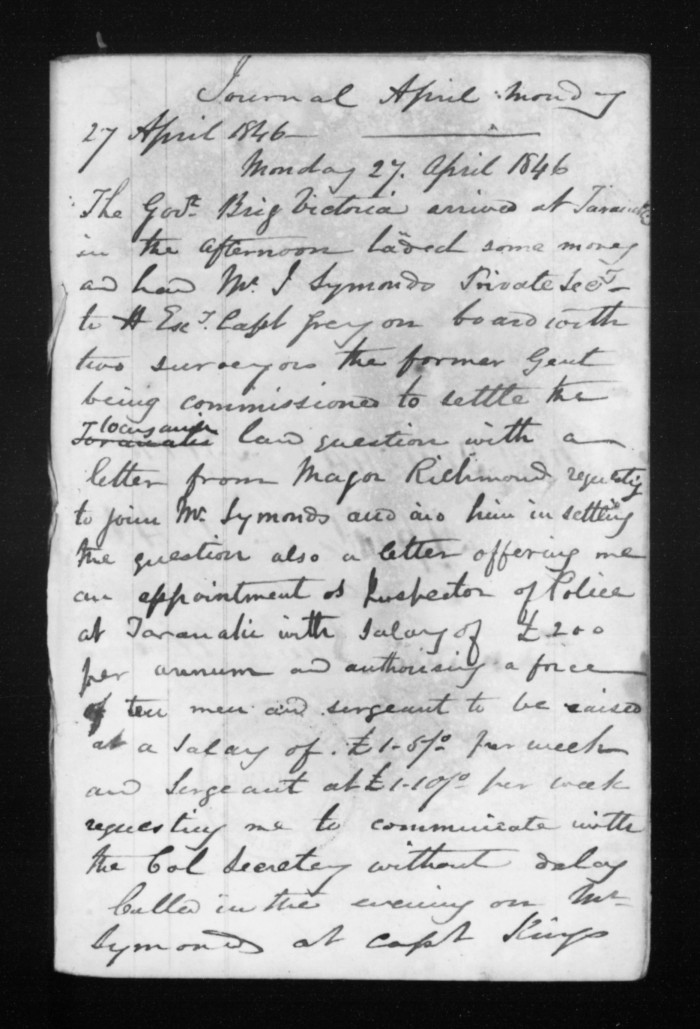 Journal April Monday
27 April 1846
Monday 27. April 1846
The Govt. Brig Victoria arrived at Taranaki
in the afternoon laded some money
and had Mr. J Symonds Private Secy.
to H Excy. Capt Grey on board with
two surveyors the former Gent
being commissioned to settle the
Taranaki land question with a
letter from Major Richmond requesting
to join Mr. Symonds and aid him in settling
the question also a letter offering me
an appointment as Inspector of Police
at Taranaki with Salary of £200
per annum and authorising a force
of ten men and sergeant to be raised
at a Salary of £1-5/0 per week
and Sergeant at £1-10/0 per week
requesting me to communicate with
the Col Secretey without delay
Called in the evening on Mr
Symonds at Capt Kings